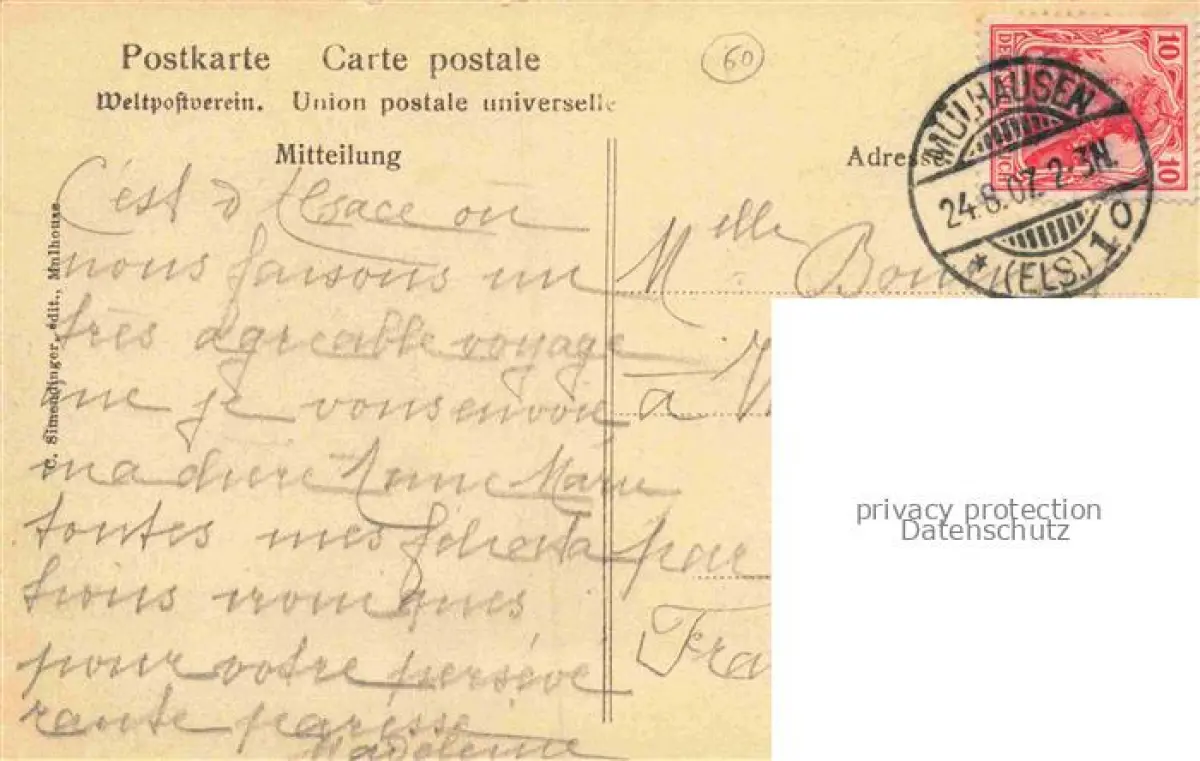 Postkarte Carte postale
Weltpostverein. Union postale universelle
Mitteilung
Adresse
60
10
10
MÜLHAUSEN
24.8.07. 2-3N.
* (ELS.) 1 o
C. Simendinger, édit., Mulhouse.
C'est d'Alsace où
nous faisons un
très agréable voyage
que je vous envoie
ma chère Anne Marie
toutes mes félicita
tions ironiques
pour votre persévé
rante paresse
Madeleine
Melle
à
par
Fra
privacy protection
Datenschutz